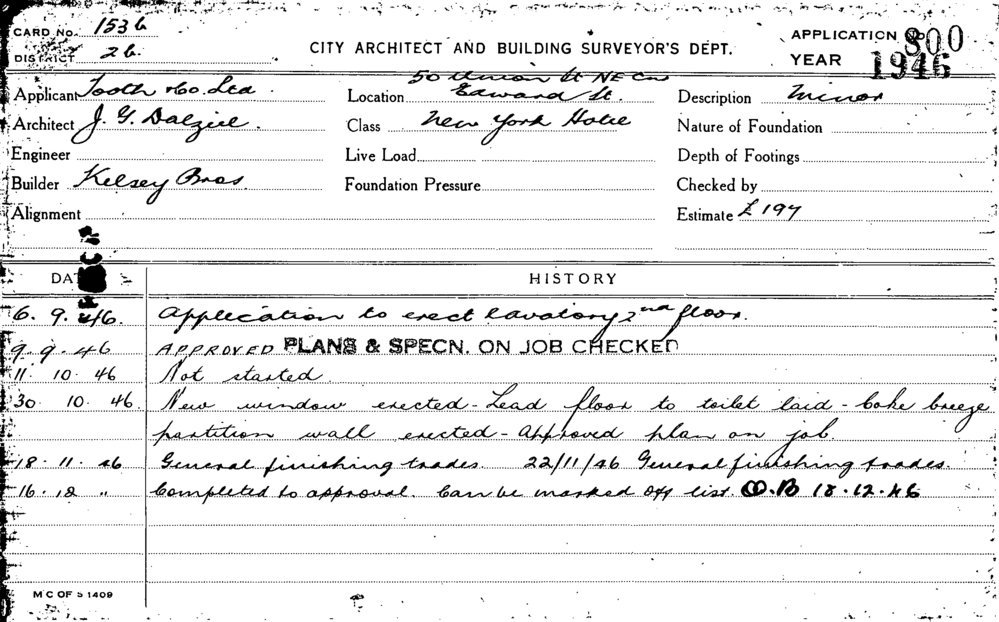 CARD No. 1536
DISTRICT 26.
CITY ARCHITECT AND BUILDING SURVEYOR'S DEPT.
APPLICATION No 800
YEAR 1946
Applicant Tooth & Co. Ltd.
Location 50 Union St NE Cnr
Edward St.
Description Minor
Architect J. G. Dalziel.
Class New York Hotel
Nature of Foundation
Engineer
Live Load
Depth of Footings
Builder Kelsey Bros.
Foundation Pressure
Checked by
Alignment
Estimate £197
DATE
HISTORY
6. 9. 46. Application to erect lavatory 2nd floor.
9. 9. 46 APPROVED PLANS & SPECN. ON JOB CHECKED
11. 10. 46 Not started.
30. 10. 46. New window erected - Lead floor to toilet laid - Coke breeze
partition wall erected - Approved plan on job.
18. 11. 46 General finishing trades. 22/11/46 General finishing trades.
16. 12 " Completed to approval. Can be marked off list. O.B 18.12.46
M C OF S 1409